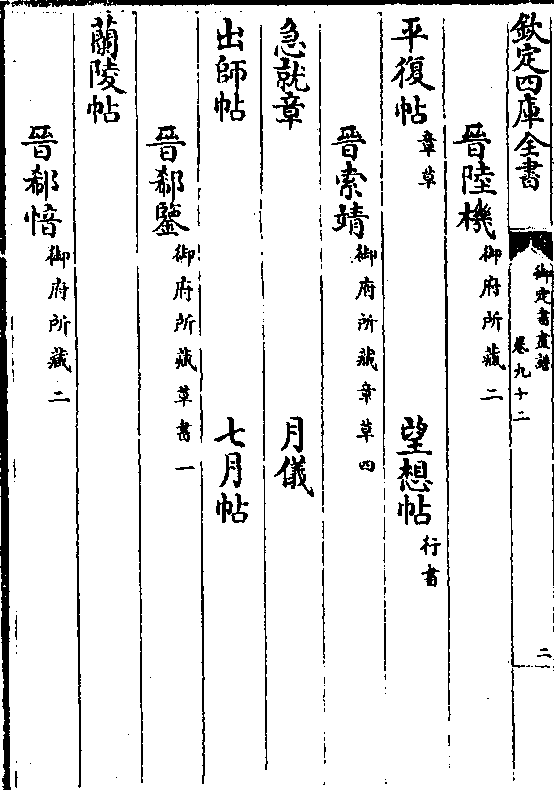 欽定四庫全書
御定書畫譜
卷九十二
二
晉陸機御府所藏二
平復帖章草 望想帖行書
晉索靖御府所藏章草四
急就章 月儀
出師帖 七月帖
晉郗鑒御府所藏草書一
蘭陵帖
晉郗愔御府所藏二